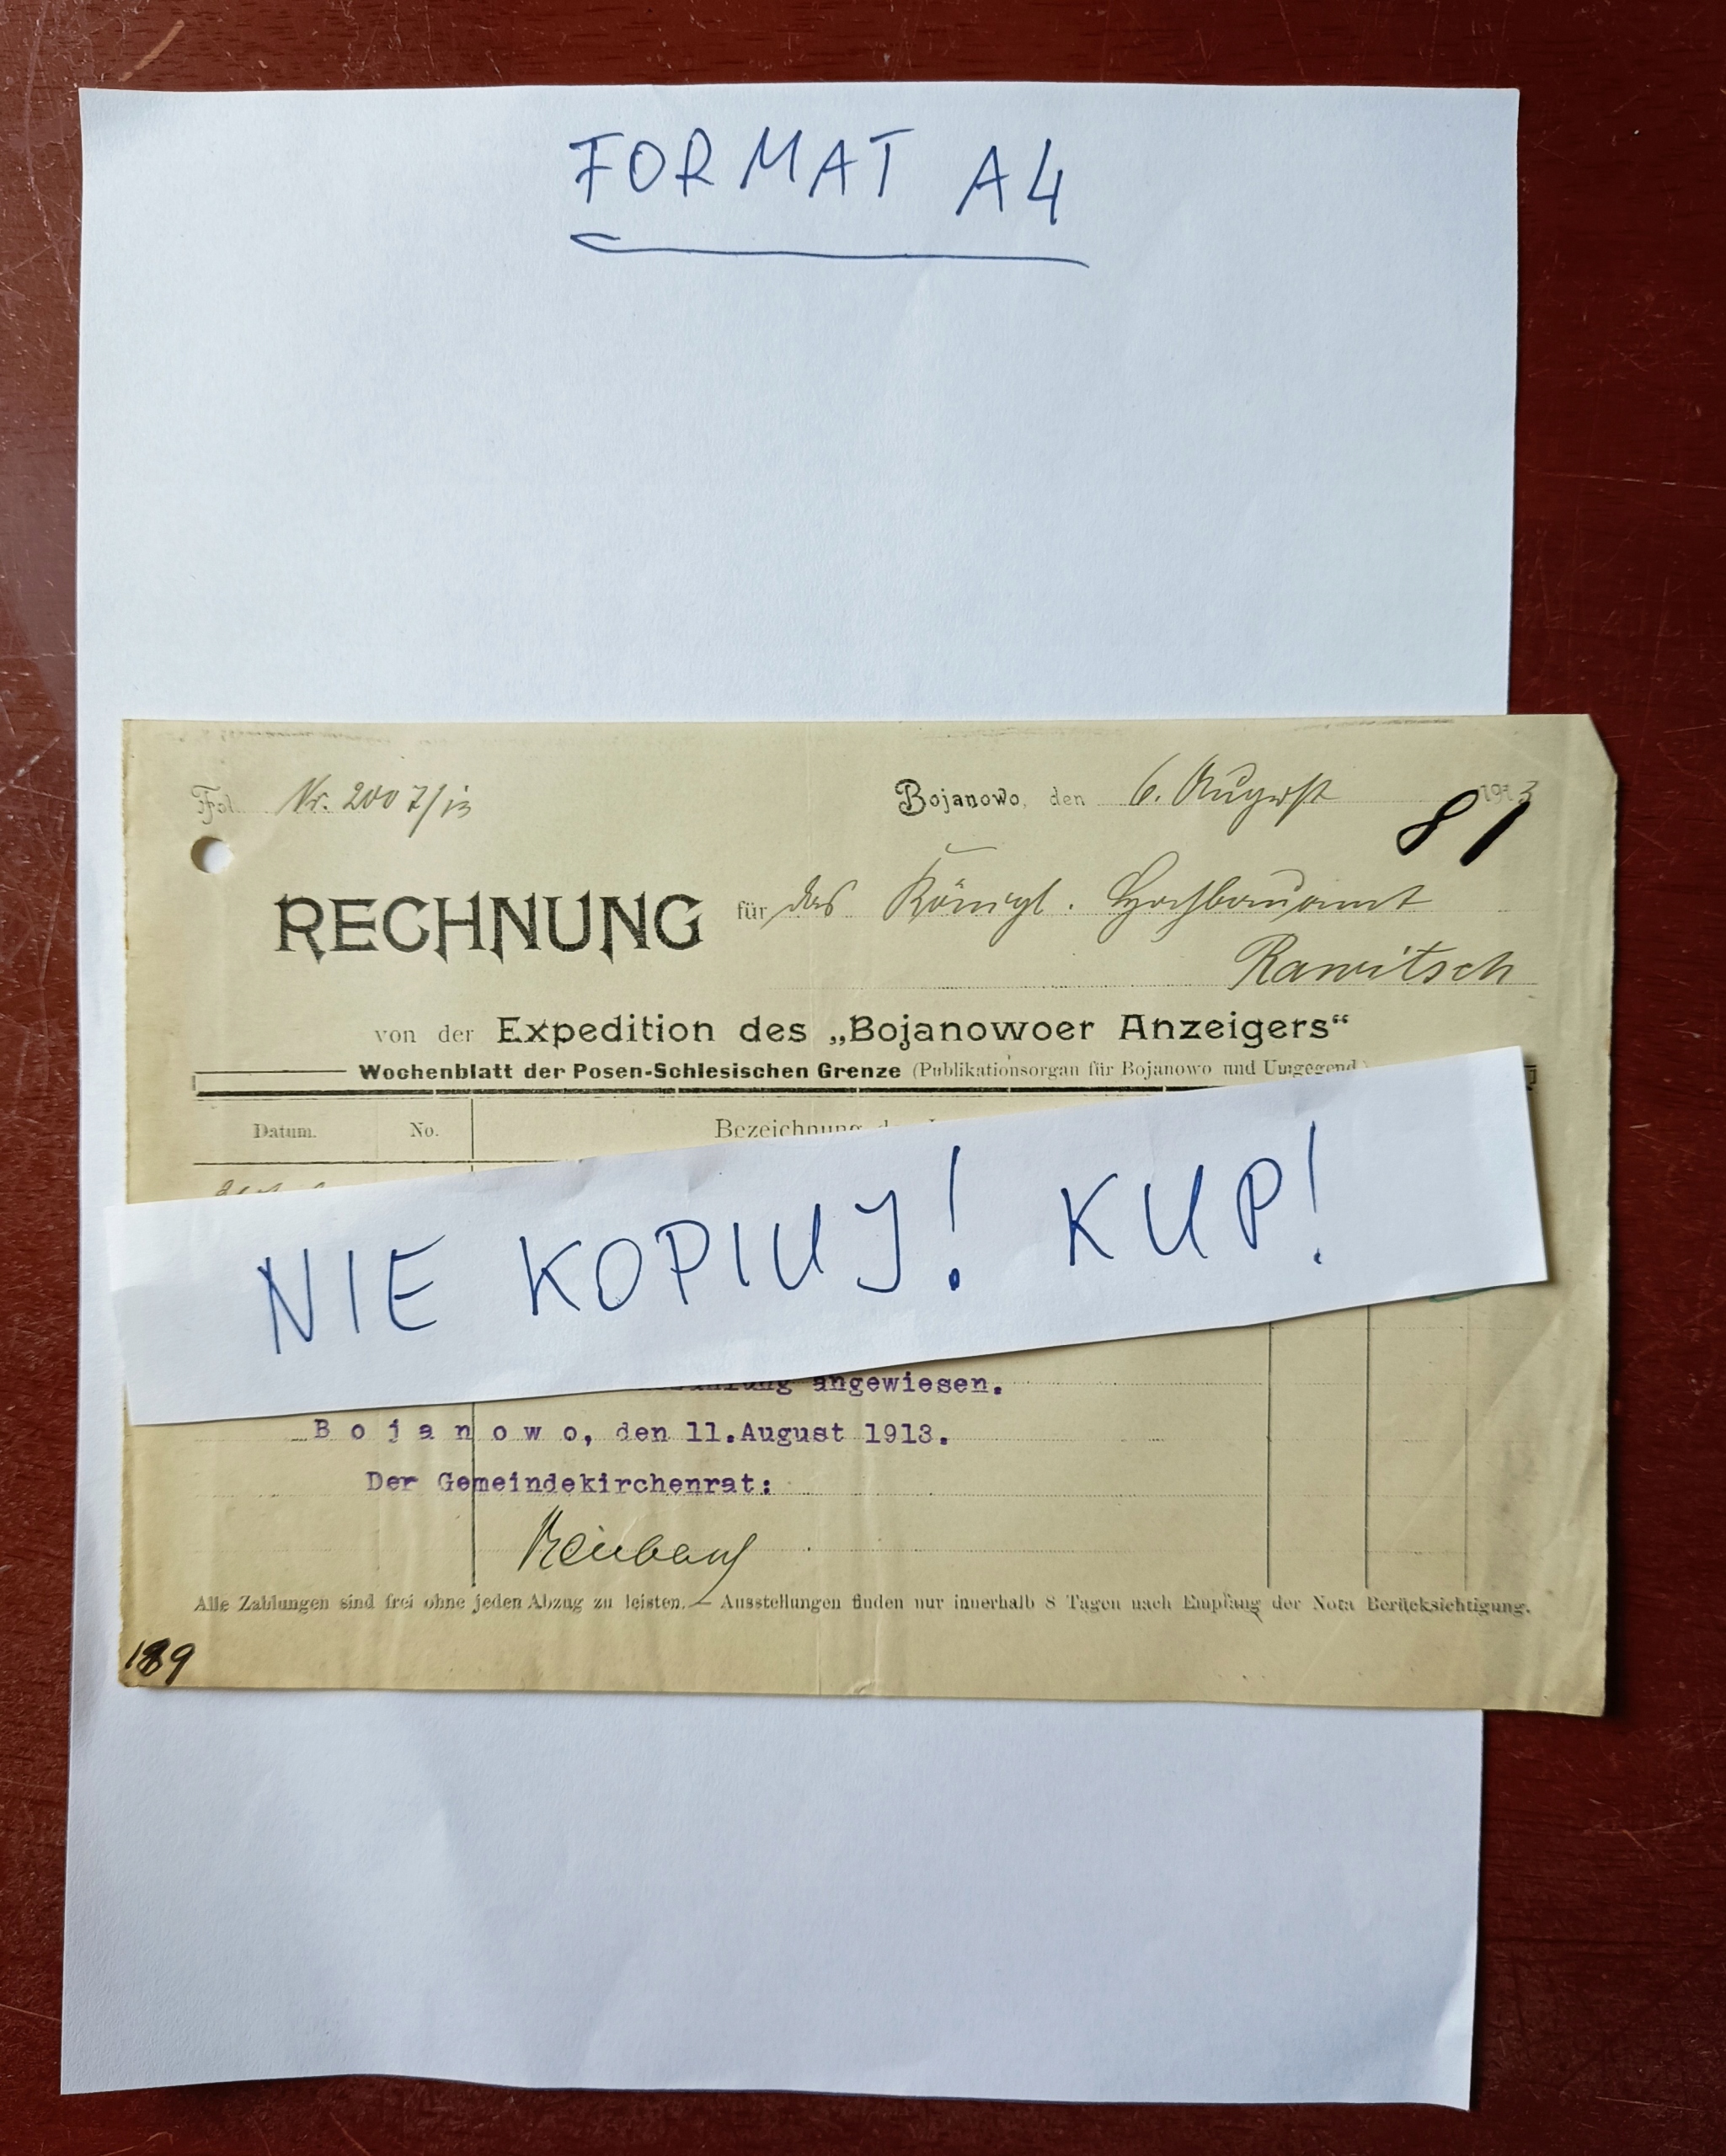 FORMAT A4
Fol. Nr. 2007/13
Bojanowo, den 6. August 1913
81
RECHNUNG für das Königl. Hochbauamt
Rawitsch
von der Expedition des „Bojanowoer Anzeigers“
Wochenblatt der Posen-Schlesischen Grenze (Publikationsorgan für Bojanowo und Umgegend.)
Datum. No. Bezeichnung
NIE KOPIUJ! KUP!
angewiesen.
Bojanowo, den 11.August 1913.
Der Gemeindekirchenrat:
Alle Zahlungen sind frei ohne jeden Abzug zu leisten. — Ausstellungen finden nur innerhalb 8 Tagen nach Empfang der Nota Berücksichtigung.
189